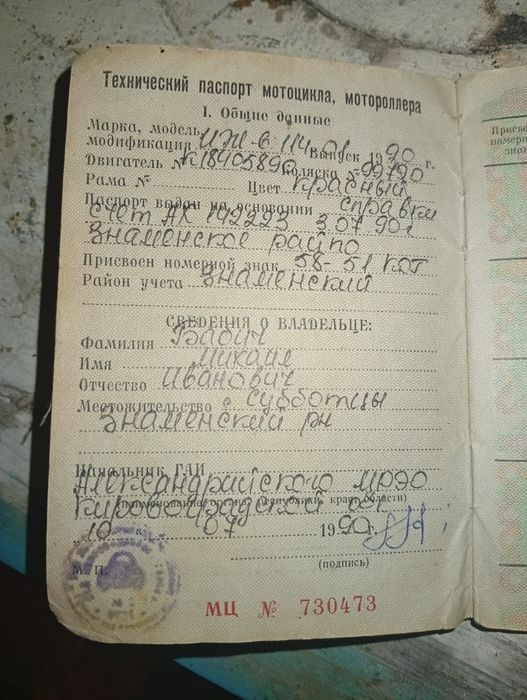 Технический паспорт мотоцикла, мотороллера
I. Общие данные
Марка, модель,
модификация ИЖ-6.114 01 Выпуск 1990 г.
Двигатель № К18405890 Коляска № 99790
Рама № Цвет красный
Паспорт выдан на основании справки
счет АК 142223 3.07.90г
Знаменское райпо
Присвоен номерной знак 58-51 КОТ
Район учета Знаменский
СВЕДЕНИЯ О ВЛАДЕЛЬЦЕ:
Фамилия Бабич
Имя Михаил
Отчество Иванович
Местожительство с Субботцы
Знаменский рн
Начальник ГАИ
Александрийского МРЭО
(наименование республики, края, области)
Кировоградской обл
„ 10 “ 07 1990г.
(подпись)
М. П.
МЦ № 730473
Присвое
номерно
знак